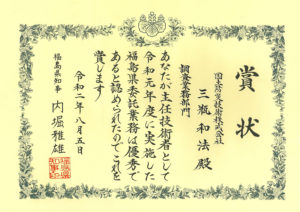 賞状
調査業務部門
国土防災技術株式会社
三瓶和法殿
あなたが主任技術者として
令和元年度に実施した
福島県委託業務は優秀で
あると認められたのでこれを
賞します
令和二年八月五日
福島県知事 内堀雅雄